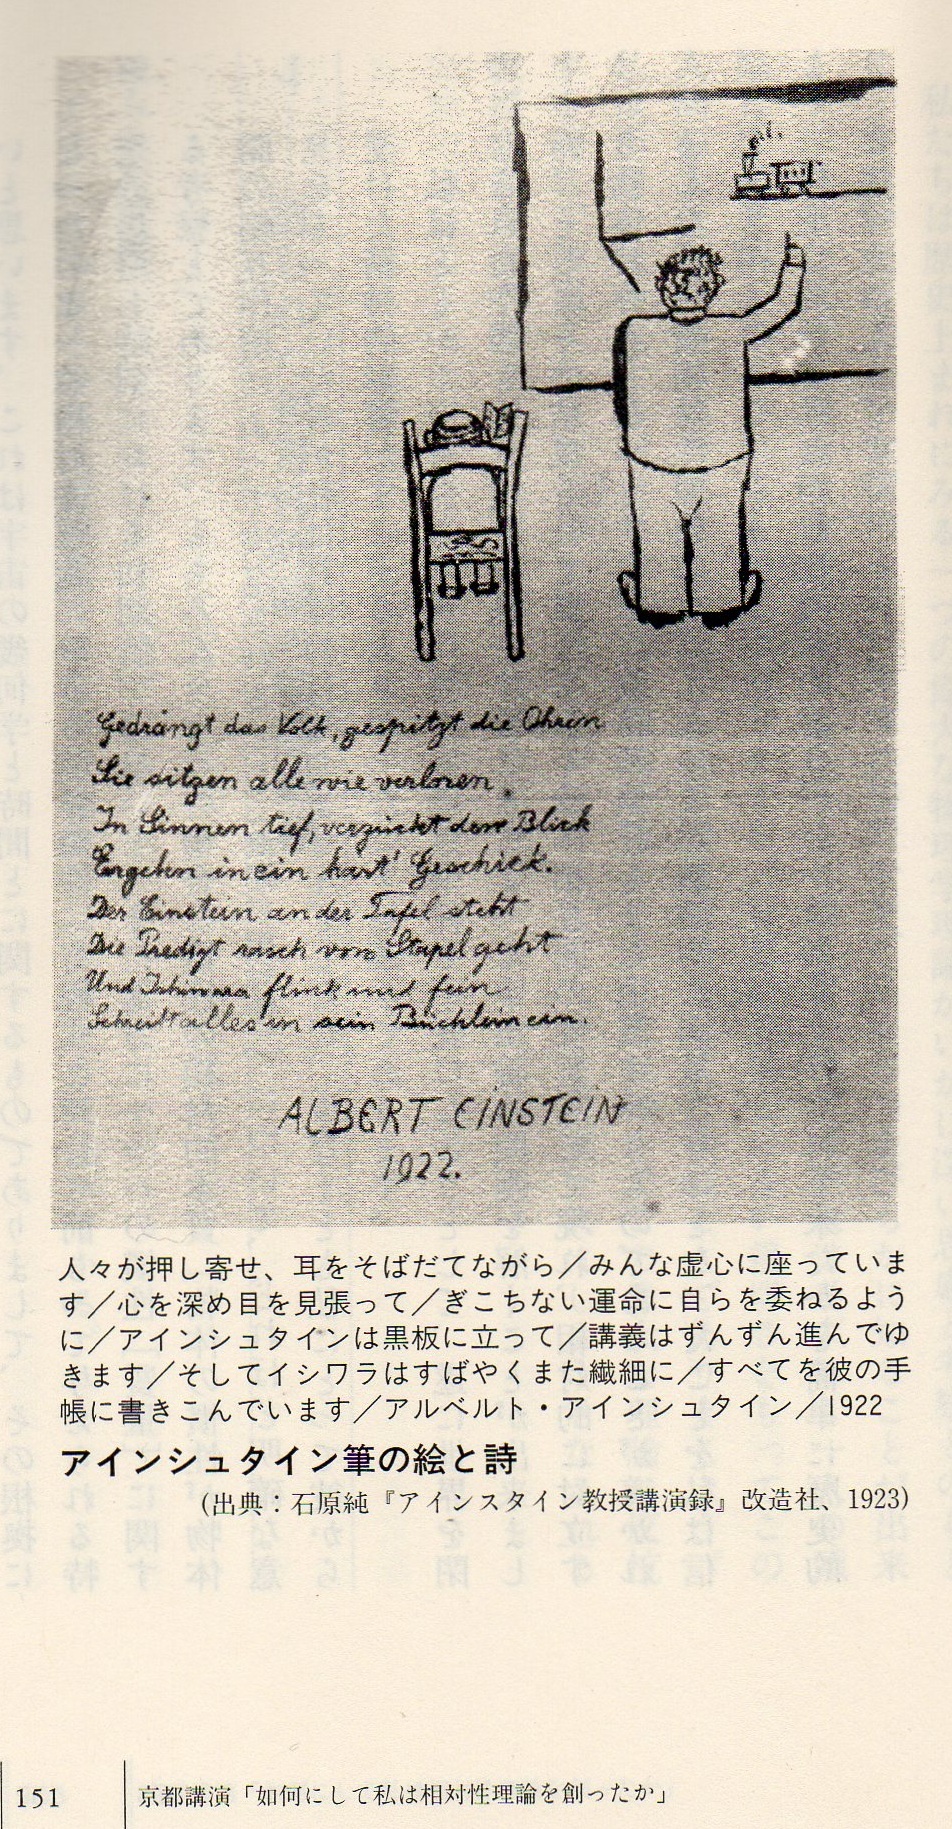 Gedrängt das Volk, gespitzt die Ohren
Sie sitzen alle wie verloren.
In Sinnen tief, verzückt den Blick
Ergeben in ein hart' Geschick.
Der Einstein an der Tafel steht
Die Predigt rasch vom Stapel geht
Und Ishiwara flink und fein
Schreibt alles in sein Büchlein ein.
ALBERT EINSTEIN
1922.
人々が押し寄せ、耳をそばだてながら／みんな虚心に座っていま
す／心を深め目を見張って／ぎこちない運命に自らを委ねるよう
に／アインシュタインは黒板に立って／講義はずんずん進んでゆ
きます／そしてイシワラはすばやくまた繊細に／すべてを彼の手
帳に書きこんでいます／アルベルト・アインシュタイン／1922
アインシュタイン筆の絵と詩
(出典：石原純『アインスタイン教授講演録』改造社、1923)
151 京都講演「如何にして私は相対性理論を創ったか」